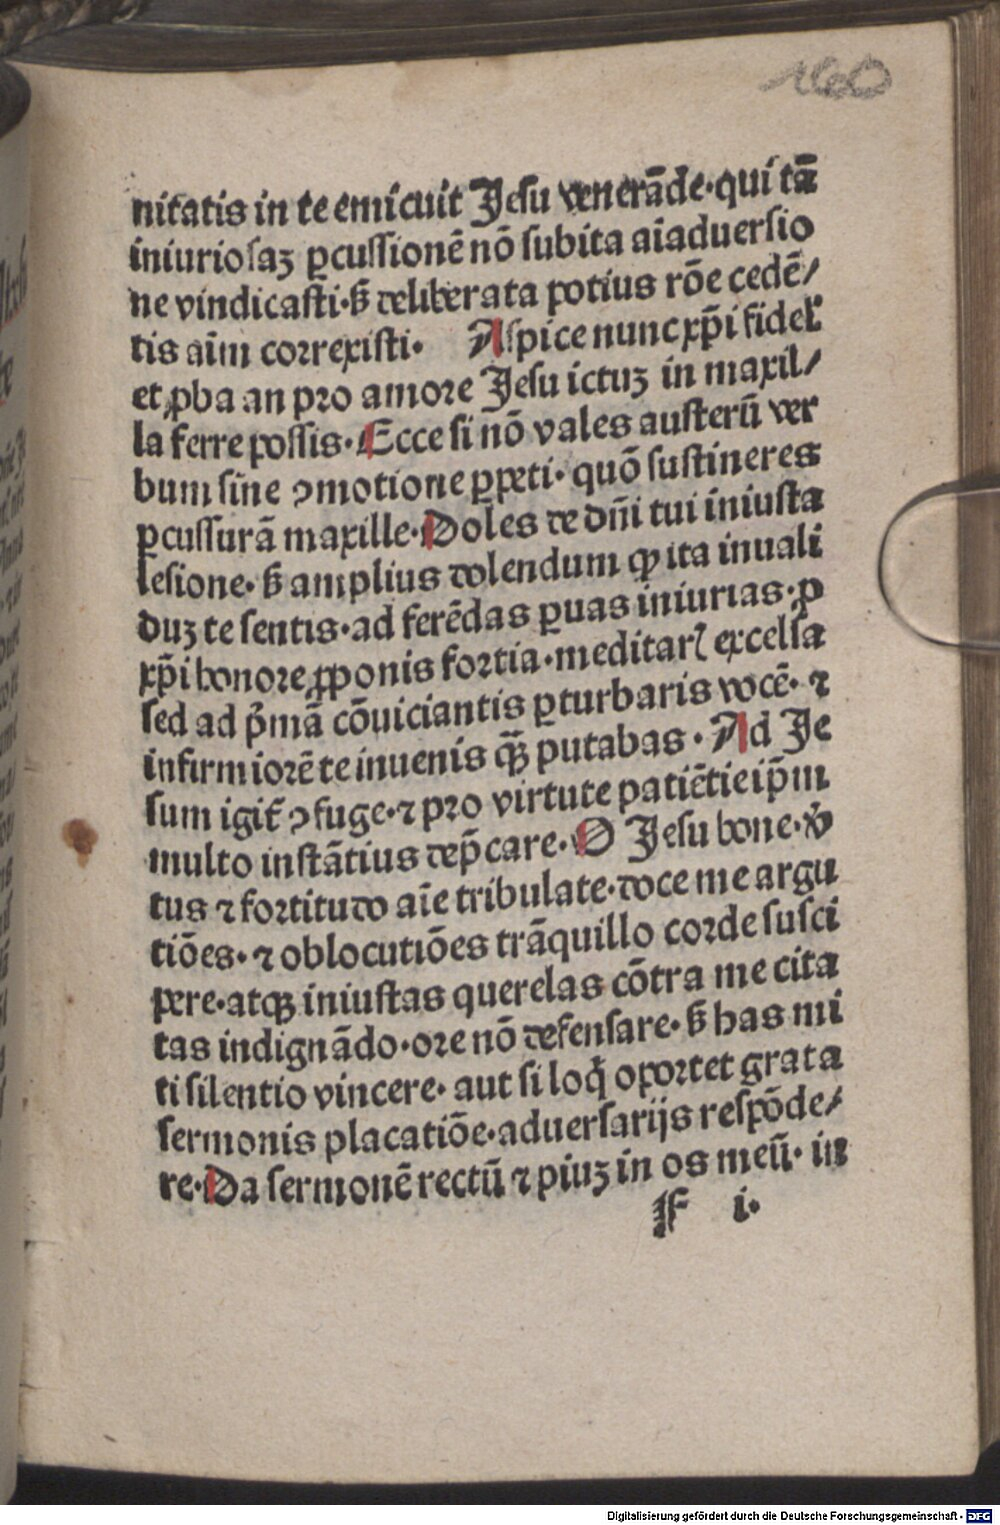 160
nitatis in te emicuit Jesu venerāde·qui tā
iniuriosaȝ ꝑcussionē nō subita aīaduersio
ne vindicasti·ẞ deliberata potius rōe cedē/
tis aīm correxisti· Aspice nunc xp̄i fidel̓
et ꝓba an pro amore Jesu ictuȝ in maxil/
la ferre possis·Ecce si nō vales austerū ver
bum sine ꝯmotione ꝑpeti· quō sustineres
ꝑcussurā maxille·Doles de dn̄i tui iniusta
lesione·ẞ amplius dolendum ꝙ ita inuali
duȝ te sentis·ad ferēdas ꝑuas iniurias·ꝓ
xp̄i honore ꝓponis fortia·meditarꝭ excelsa
sed ad p̄mā cōuiciantis ꝑturbaris vocē·⁊
infirmiorē te inuenis ꝙ̄ putabas·Ad Je
sum igit̄ ꝯfuge·⁊ pro virtute patiētie ip̄m
multo instātius dep̄care·O Jesu bone·v̓
tus ⁊ fortitudo aīe tribulate·doce me argu
tiōes·⁊ oblocutiōes trāquillo corde susci
pere·atqȝ iniustas querelas cōtra me cita
tas indignādo·ore nō defensare·ẞ has mi
ti silentio vincere· aut si loq̄ oportet grata
sermonis placatiōe·aduersarijs respōde/
re·Da sermonē rectū ⁊ piuȝ in os meū· in
F i·
Digitalisierung gefördert durch die Deutsche Forschungsgemeinschaft - DFG